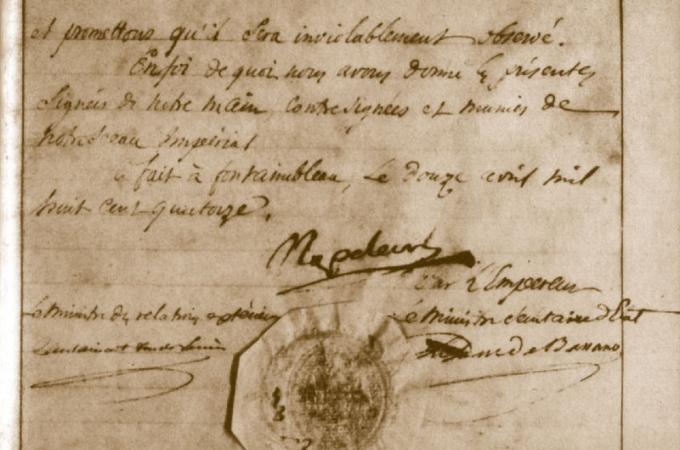 et promettons qu'il sera inviolablement observé.
Enfoi de quoi nous avons donné les présentes
signées de notre main, contresignées et munies de
notre Sceau impérial
fait à fontainebleau, Le douze avril mil
huit cent quatorze.
Napoleon
Par l'Empereur
Le Ministre des relations extérieures
Le Ministre Secrétaire d'Etat
Le Duc de Bassano